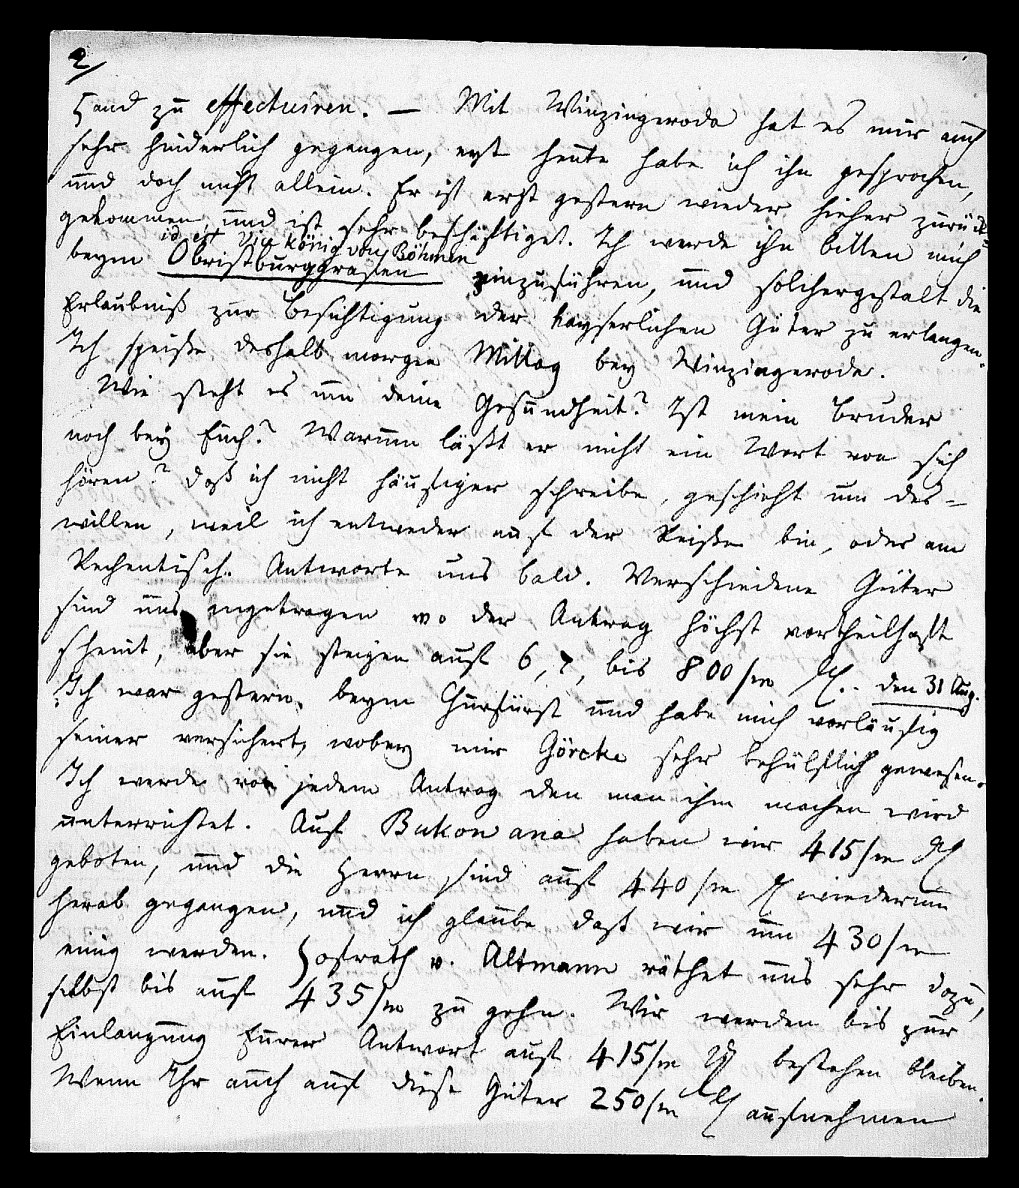 2/
Hand zu effectuiren. — Mit Winzingeroda hat es mir auch
sehr hinderlich gegangen, erst heute habe ich ihn gesprochen,
und doch nicht allein. Er ist erst gestern wieder hieher zurück
gekommen und ist sehr beschäftiget. Ich werde ihn bitten mich
id est Vice König von Böhmen
beym Obristburggrafen einzuführen, und solchergestalt die
Erlaubniß zur Besichtigung der Kayserlichen Güter zu erlangen.
Ich speiße deshalb morgen Mittag bey Winzingerode.
Wie steht es um deine Gesundheit? Ist mein Bruder
noch bey Euch? Warum läßt er nicht ein Wort von sich
hören? Daß ich nicht häufiger schreibe, geschieht um des-
willen, weil ich entweder auf der Reise bin, oder am
Rechentisch. Antworte uns bald. Verschiedene Güter
sind uns angetragen wo der Antrag höchst vortheilhaft
scheint, aber sie steigen auf 6, 7, bis 800/m Rf. den 31 Aug.
Ich war gestern beym Churfürst und habe mich vorläufig
seiner versichert, wobey mir Görcke sehr behülflich gewesen.
Ich werde von jedem Antrag den man ihm machen wird
unterrichtet. Auf Bukowana haben wir 415/m Rf
geboten, und die Herrn sind auf 440/m Rf wiederum
herab gegangen, und ich glaube daß wir um 430/m
einig werden. Hofrath v. Altmann räthet uns sehr dazu,
selbst bis auf 435/m zu gehn. Wir werden bis zur
Einlangung Eurer Antwort auf 415/m Rf bestehen bleiben.
Wenn Ihr auch auf diese Güter 250/m Rf aufnehmen